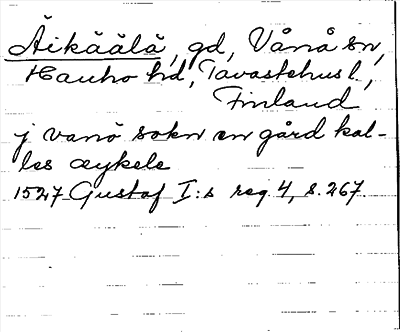 Äikäälä, gd, Vånå sn,
Hauho hd, Tavastehus l.,
Finland
j vanö sokn en gård kal-
les æykele
1527 Gustaf I:s reg. 4, s. 267.